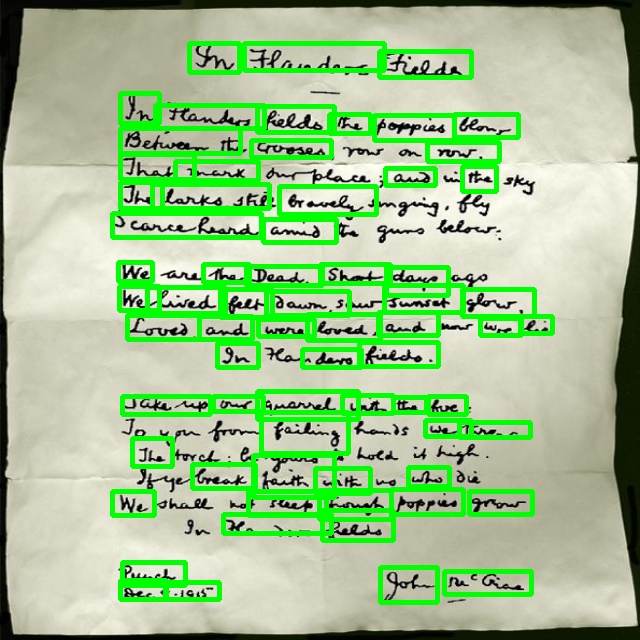 In Flanders Fields
In Flanders fields the poppies blow
Between the crosses row on row,
That mark our place; and in the sky
The larks still bravely singing, fly
Scarce heard amid the guns below.
We are the Dead. Short days ago
We lived felt dawn, saw sunset glow,
Loved and were loved, and now we lie
In Flanders fields.
Take up our quarrel with the foe:
To you from failing hands we throw
The torch; be yours to hold it high.
If ye break faith with us who die
We shall not sleep though poppies grow
In Flanders fields
Punch
Dec 8 · 1915
John McCrae